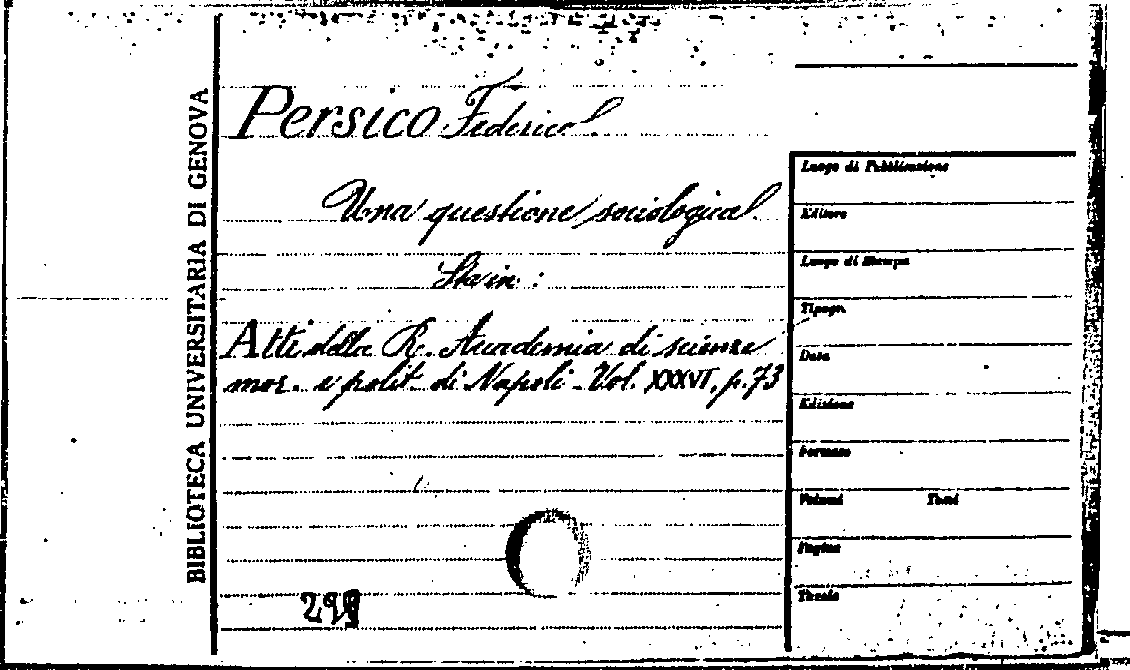 BIBLIOTECA UNIVERSITARIA DI GENOVA
Persico Federico
Una questione sociologica
Sta in :
Atti della R. Accademia di scienze
mor. e polit. di Napoli - Vol. XXXVI, p. 73
Luogo di Pubblicazione
Editore
Luogo di Stampa
Tipogr.
Data
Edizione
Formato
Volumi
Tomi
Pagine
Tavole